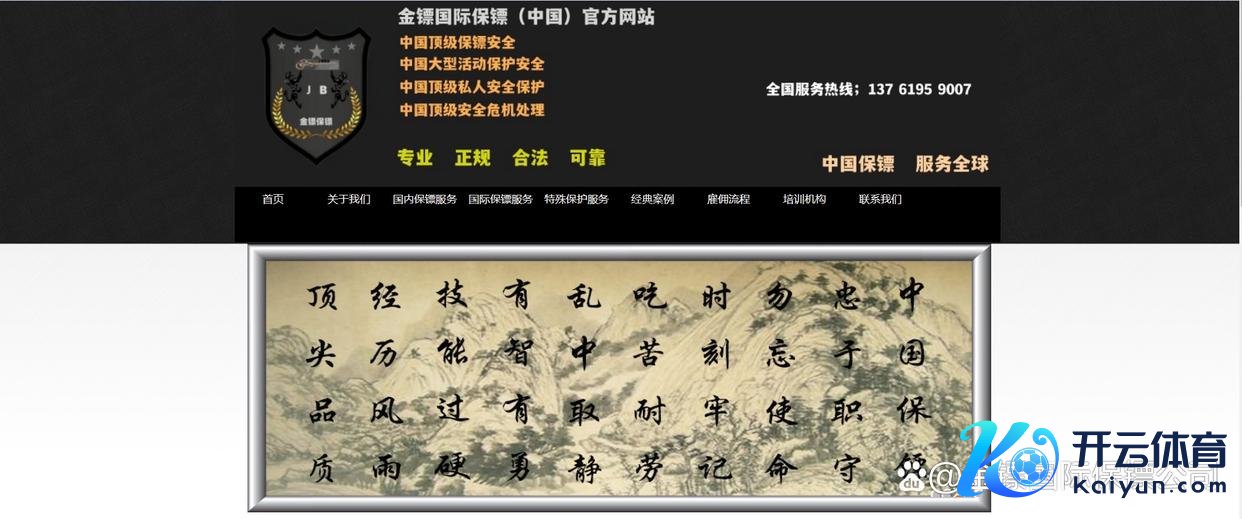 金镖国际保镖（中国）官方网站
中国顶级保镖安全
中国大型活动保护安全
中国顶级私人安全保护
中国顶级安全危机处理
专业 正规 合法 可靠
J B
金镖保镖
全国服务热线；137 6195 9007
中国保镖 服务全球
首页 关于我们 国内保镖服务 国际保镖服务 特殊保护服务 经典案例 雇佣流程 培训机构 联系我们
中国保镖
忠于职守
勿忘使命
时刻牢记
吃苦耐劳
乱中取静
有智有勇
技能过硬
经历风雨
顶尖品质
du @国际保镖公司
开云体育
Kaiyun.com